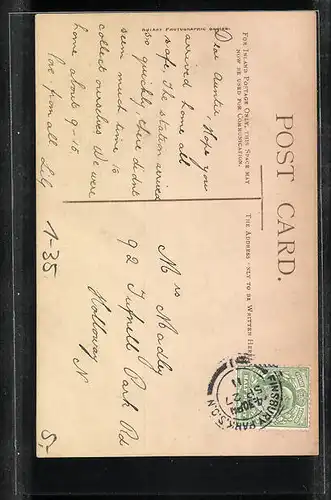 ROTARY PHOTOGRAPHIC SERIES
FOR INLAND POSTAGE ONLY, THIS SPACE MAY
NOW BE USED FOR COMMUNICATION.
POST CARD.
THE ADDRESS ONLY TO BE WRITTEN HERE
Dear Auntie, Hope you
arrived home all
safe, the station arrived
so quickly, there didnt
seem much time to
collect ourselves We were
home about 9-15
love from all Lily
1-35
Mrs Madley
92 Tufnell Park Rd
Holloway
N
5,-
FINSBURY PARK.S.O.N
4.30PM
SP 2
11